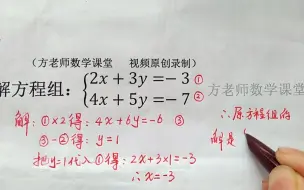 （方老师数学课堂 视频原创录制）
解方程组：{2x+3y=-3 ①
4x+5y=-7 ②
方老师数学课堂
解：①×2得：4x+6y=-6 ③
③-②得：y=1
把y=1代入①得：2x+3×1=-3
∴x=-3
∴原方程组的
解是{